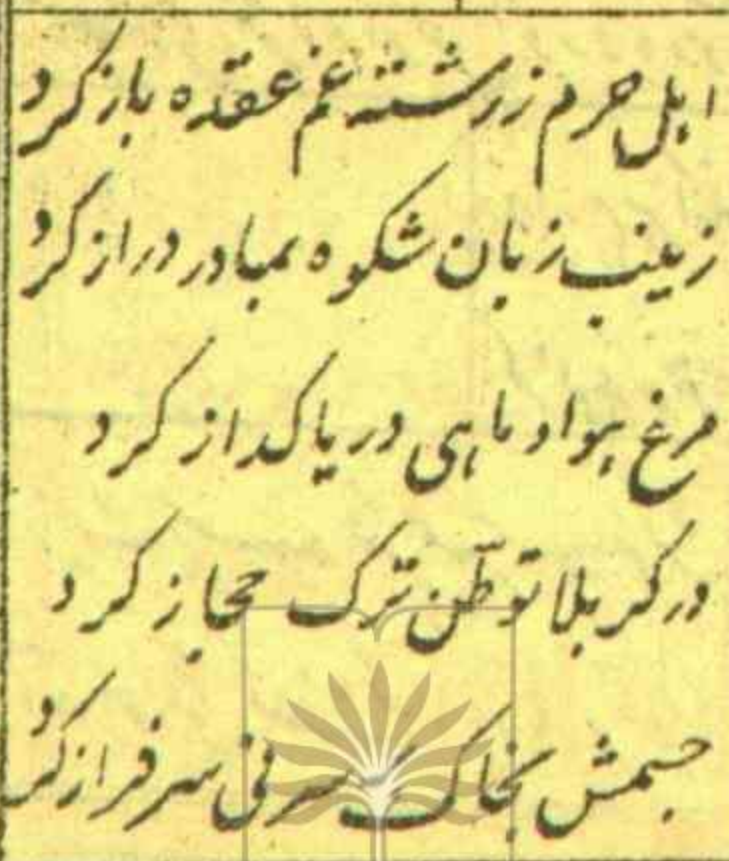 اہل حرم ز رشتہ غم عقدہ باز کرد
زینب زبان شکوه بمادر دراز کرد
مرغ ہوا و ماہی دریا کداز کرد
در کربلا توطّن ترک حجاز کرد
جسمش بخاک سر نی سرفراز کرد